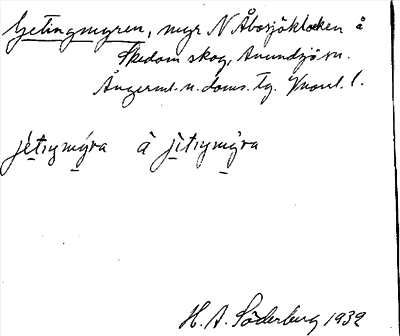 Getingmyren, myr N Åbosjöklocken å
Skedom skog, Anundsjö sn.
Ångerml. n. doms. tg. Vnorrl. l.
jétıŋmýra å jìtıŋmýra
H. A. Söderberg 1932